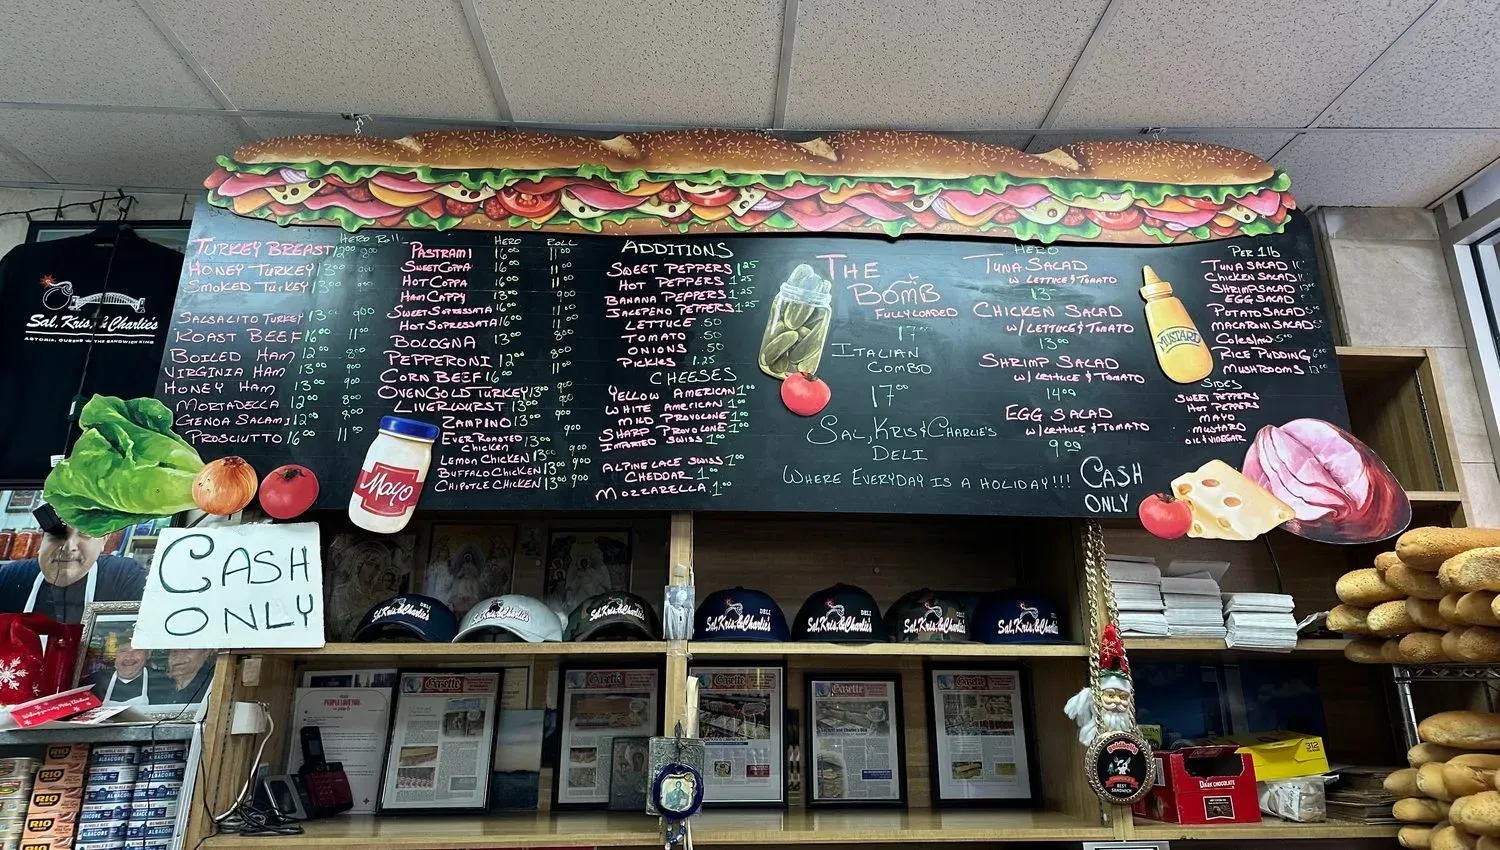 HERO ROLL
TURKEY BREAST 12⁰⁰ 8⁰⁰
HONEY TURKEY 13⁰⁰ 9⁰⁰
SMOKED TURKEY 13⁰⁰ 9⁰⁰
SALSALITO TURKEY 13⁰⁰ 9⁰⁰
ROAST BEEF 16⁰⁰ 11⁰⁰
BOILED HAM 12⁰⁰ 8⁰⁰
VIRGINIA HAM 13⁰⁰ 9⁰⁰
HONEY HAM 13⁰⁰ 9⁰⁰
MORTADELLA 12⁰⁰ 8⁰⁰
GENOA SALAMI 12⁰⁰ 8⁰⁰
PROSCIUTTO 16⁰⁰ 11⁰⁰
HERO ROLL
PASTRAMI 16⁰⁰ 11⁰⁰
SWEET COPPA 16⁰⁰ 11⁰⁰
HOT COPPA 16⁰⁰ 11⁰⁰
HAM CAPPY 13⁰⁰
SWEET SOPRESSATA 16⁰⁰ 11⁰⁰
HOT SOPRESSATA 16⁰⁰ 11⁰⁰
BOLOGNA 13⁰⁰
PEPPERONI 12⁰⁰ 8⁰⁰
CORN BEEF 16⁰⁰ 11⁰⁰
OVENGOLD TURKEY 13⁰⁰ 9⁰⁰
LIVERWURST 13⁰⁰ 9⁰⁰
ZAMPINO 13⁰⁰ 9⁰⁰
EVER ROASTED CHICKEN 13⁰⁰ 9⁰⁰
LEMON CHICKEN 13⁰⁰ 9⁰⁰
BUFFALO CHICKEN 13⁰⁰ 9⁰⁰
CHIPOTLE CHICKEN 13⁰⁰ 9⁰⁰
ADDITIONS
SWEET PEPPERS 1.25
HOT PEPPERS 1.25
BANANA PEPPERS 1.25
JALEPENO PEPPERS 1.25
LETTUCE .50
TOMATO .50
ONIONS .50
PICKLES 1.25
CHEESES
YELLOW AMERICAN 1⁰⁰
WHITE AMERICAN 1⁰⁰
MILD PROVOLONE 1⁰⁰
SHARP PROVOLONE 1⁰⁰
IMPORTED SWISS 1⁰⁰
ALPINE LACE SWISS 1⁰⁰
CHEDDAR 1⁰⁰
MOZZARELLA 1⁰⁰
THE BOMB
FULLY LOADED
17⁰⁰
ITALIAN COMBO
17⁰⁰
SAL, KRIS & CHARLIE'S
DELI
WHERE EVERYDAY IS A HOLIDAY!!!
HERO
TUNA SALAD
W/ LETTUCE & TOMATO
13⁰⁰
CHICKEN SALAD
W/ LETTUCE & TOMATO
13⁰⁰
SHRIMP SALAD
W/ LETTUCE & TOMATO
14⁰⁰
EGG SALAD
W/ LETTUCE & TOMATO
9⁰⁰
CASH ONLY
PER 1lb
TUNA SALAD
CHICKEN SALAD
SHRIMP SALAD
EGG SALAD
POTATO SALAD
MACARONI SALAD
COLESLAW
RICE PUDDING
MUSHROOMS
SIDES
SWEET PEPPERS
HOT PEPPERS
MAYO
MUSTARD
OIL & VINEGAR
MUSTARD
Mayo
Sal, Kris, & Charlie's
CASH ONLY
DELI
Sal, Kris, & Charlie's
Sal, Kris, & Charlie's
Sal, Kris, & Charlie's
DELI
Sal, Kris, & Charlie's
DELI
Sal, Kris, & Charlie's
Sal, Kris, & Charlie's
Sal, Kris, & Charlie's
Gazette
Gazette
Gazette
Gazette
Gazette
BEST SANDWICH
DARK CHOCOLATE
312
RIO
RIO
RIO
BUMBLE BEE
ALBACORE